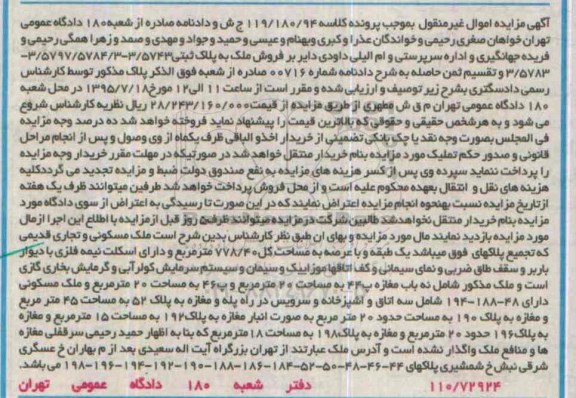 آگهی مزایده اموال غیرمنقول بموجب پرونده کلاسه ۱۱۹/۱۸۰/۹۴ ج ش و دادنامه صادره از شعبه ۱۸۰ دادگاه عمومی
تهران خواهان صغری رحیمی و خواندگان عذرا و کبری و بهنام و عیسی و حمید و جواد و مهدی و صمد و زهرا همگی رحیمی و
فریده جهانگیری و اداره سرپرستی و ام الیلی داودی دایر بر فروش ملک به پلاک ثبتی ۳/۵۷۴۳-۳/۵۷۸۴-۳/۵۷۹۷-
۳/۵۷۸۳ و تقسیم ثمن حاصله به شرح دادنامه شماره ۰۰۷۱۶ صادره از شعبه فوق الذکر پلاک مذکور توسط کارشناس
رسمی دادگستری بشرح زیر توصیف و ارزیابی شده و مقرر است از ساعت ۱۱ الی ۱۲ مورخ ۱۳۹۵/۷/۱۸ در محل شعبه
۱۸۰ دادگاه عمومی تهران م ق ش مطهری از طریق مزایده از قیمت ۲۸/۲۴۳/۱۶۰/۰۰۰ ریال نظریه کارشناس شروع
می شود و به هرشخص حقیقی و حقوقی که بالاترین قیمت را پیشنهاد نماید فروخته خواهد شد ده درصد وجه مزایده
فی المجلس بصورت وجه نقد یا چک بانکی تضمینی از خریدار اخذ و الباقی ظرف یکماه از وی وصول و پس از انجام مراحل
قانونی و صدور حکم تملیک مورد مزایده بنام خریدار منتقل خواهد شد در صورتیکه در مهلت مقرر خریدار وجه مزایده
را پرداخت ننماید سپرده وی پس از کسر هزینه های مزایده به نفع صندوق دولت ضبط و مزایده تجدید می گردد کلیه
هزینه های نقل و انتقال بعهده محکوم علیه است و از محل فروش پرداخت خواهد شد طرفین میتوانند ظرف یک هفته
از تاریخ مزایده نسبت بهنحوه انجام مزایده اعتراض نمایند که در این صورت تا رسیدگی به اعتراض از سوی دادگاه مورد
مزایده بنام خریدار منتقل نخواهد شد طالبین شرکت در مزایده میتوانند ظرف ۵ روز قبل از مزایده با اطلاع این اجرا از مال
مورد مزایده بازدید نمایند مال مورد مزایده و بهای ان طبق نظر کارشناس بدین شرح است ملک مسکونی و تجاری قدیمی
که تجمیع پلاکهای فوق میباشد یک طبقه و با عرصه به مساحت کل ۷۷۸/۴۰ مترمربع و دارای اسکلت نیمه فلزی با دیوار
باربر و سقف طاق ضربی و نمای سیمانی و کف اتاقها موزاییک و سیمان و سیستم سرمایش کولر آبی و گرمایش بخاری گازی
است و ملک مذکور شامل نه باب مغازه پ۴۴ به مساحت ۲۰ مترمربع و پ۴۶ به مساحت ۲۰ مترمربع و ملک مسکونی
دارای ۴۸-۱۸۸-۱۹۴ شامل سه اتاق و آشپزخانه و سرویس در راه پله و مغازه به پلاک ۵۲ به مساحت ۴۵ متر مربع
و مغازه به پلاک ۱۹۰ به مساحت حدود ۲۰ متر مربع به صورت انبار مغازه به پلاک ۱۹۲ به مساحت ۱۵ مترمربع و مغازه
به پلاک ۱۹۶ حدود ۲۰ مترمربع و مغازه به پلاک ۱۹۸ به مساحت ۱۸ مترمربع که بنا به اظهار حمید رحیمی سرقفلی مغازه
ها و منافع ملک واگذار نشده است و آدرس ملک عبارتند از تهران بزرگراه آیت اله سعیدی بعد از م بهاران خ عسگری
شرقی نبش خ شمشیری پلاکهای ۴۴-۴۶-۴۸-۵۰-۵۲-۱۸۴-۱۸۶-۱۸۸-۱۹۰-۱۹۲-۱۹۴-۱۹۶-۱۹۸ می باشد.
۱۱۰/۷۲۹۲۴ دفتر شعبه ۱۸۰ دادگاه عمومی تهران